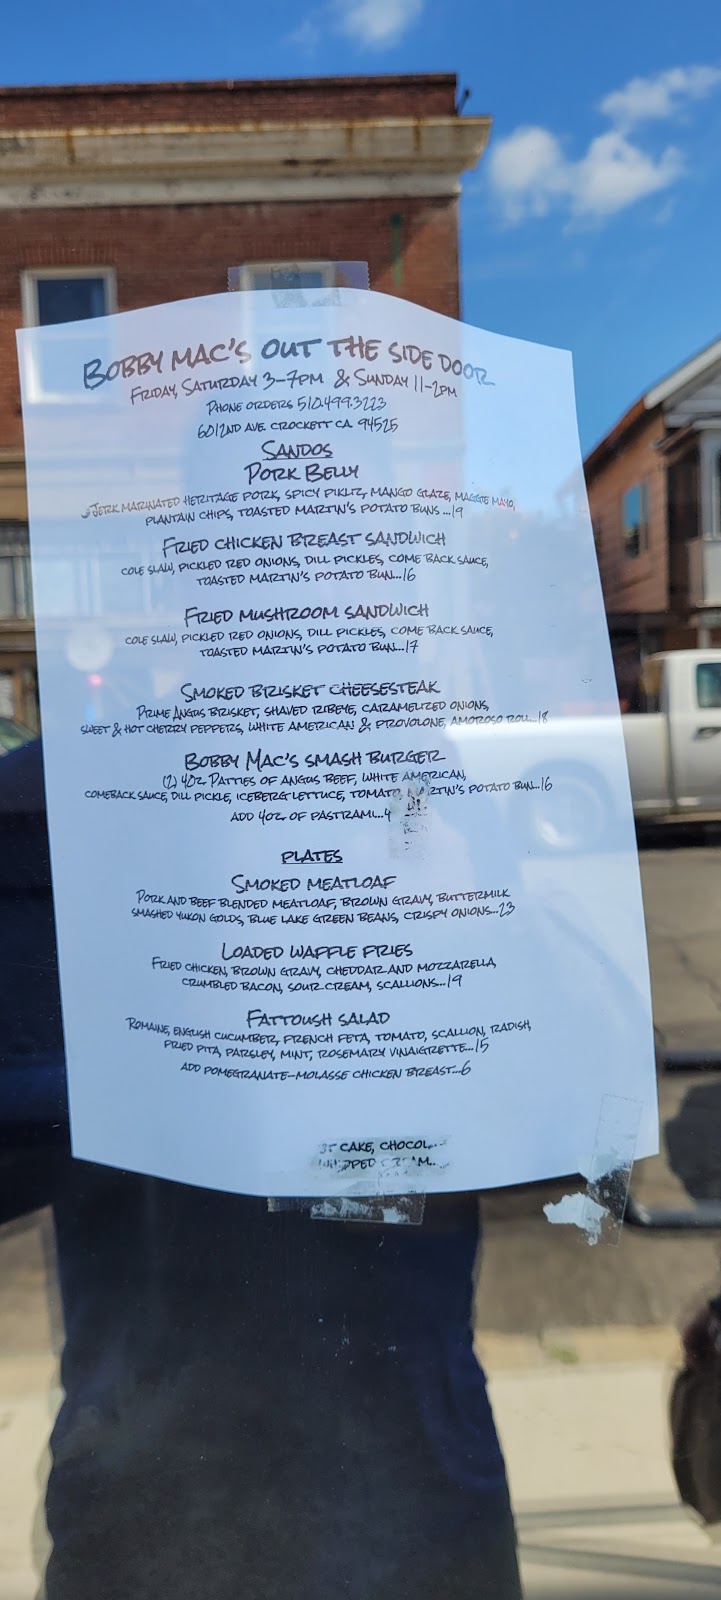 BOBBY MAC'S OUT THE SIDE DOOR
FRIDAY, SATURDAY 3-7PM & SUNDAY 11-2PM
PHONE ORDERS 510.499.3223
601 2ND AVE. CROCKETT CA. 94525
SANDOS
PORK BELLY
JERK MARINATED HERITAGE PORK, SPICY PIKLIZ, MANGO GLAZE, MAGGIE MAYO,
PLANTAIN CHIPS, TOASTED MARTIN'S POTATO BUNS ...19
FRIED CHICKEN BREAST SANDWICH
COLE SLAW, PICKLED RED ONIONS, DILL PICKLES, COME BACK SAUCE,
TOASTED MARTIN'S POTATO BUN...16
FRIED MUSHROOM SANDWICH
COLE SLAW, PICKLED RED ONIONS, DILL PICKLES, COME BACK SAUCE,
TOASTED MARTIN'S POTATO BUN...17
SMOKED BRISKET CHEESESTEAK
PRIME ANGUS BRISKET, SHAVED RIBEYE, CARAMELIZED ONIONS,
SWEET & HOT CHERRY PEPPERS, WHITE AMERICAN & PROVOLONE, AMOROSO ROLL...18
BOBBY MAC'S SMASH BURGER
(2) 4OZ PATTIES OF ANGUS BEEF, WHITE AMERICAN,
COMEBACK SAUCE, DILL PICKLE, ICEBERG LETTUCE, TOMATO, MARTIN'S POTATO BUN...16
ADD 4OZ OF PASTRAMI...4
PLATES
SMOKED MEATLOAF
PORK AND BEEF BLENDED MEATLOAF, BROWN GRAVY, BUTTERMILK
SMASHED YUKON GOLDS, BLUE LAKE GREEN BEANS, CRISPY ONIONS...23
LOADED WAFFLE FRIES
FRIED CHICKEN, BROWN GRAVY, CHEDDAR AND MOZZARELLA,
CRUMBLED BACON, SOUR CREAM, SCALLIONS...19
FATTOUSH SALAD
ROMAINE, ENGLISH CUCUMBER, FRENCH FETA, TOMATO, SCALLION, RADISH,
FRIED PITA, PARSLEY, MINT, ROSEMARY VINAIGRETTE...15
ADD POMEGRANATE-MOLASSE CHICKEN BREAST...6
CAKE,